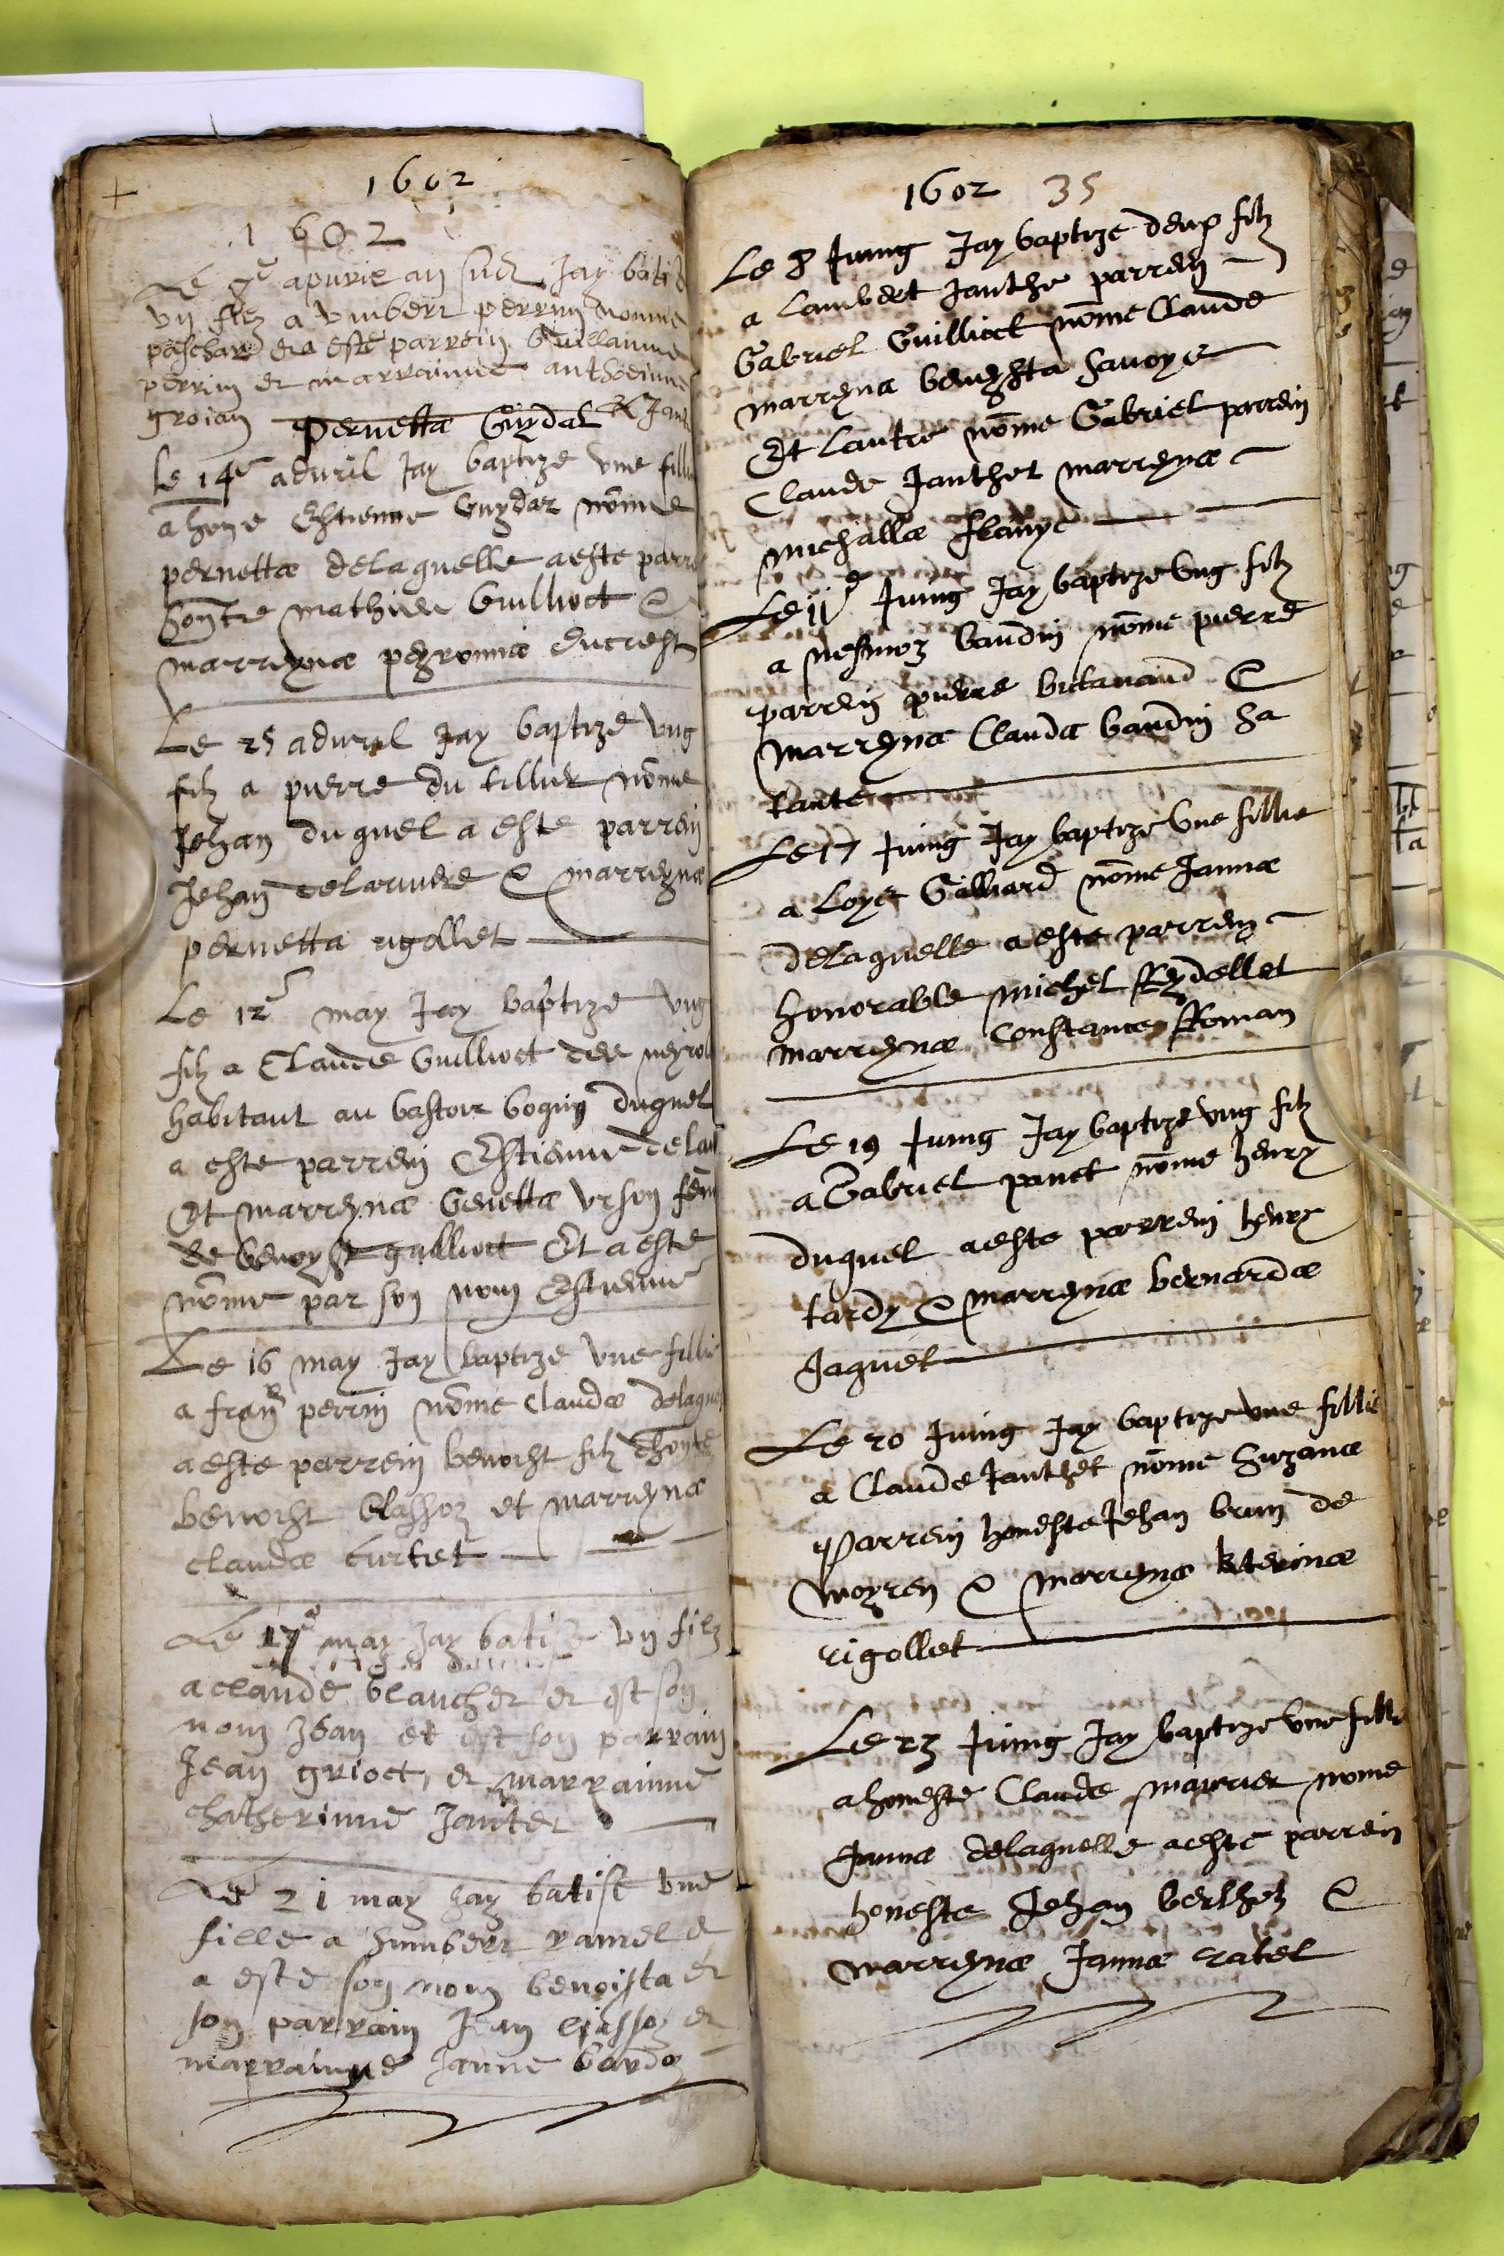 1602
1602
Le 7e apvril an sud Jay batisé
un filz a umbert perrin nomme
paschard et a esté parrein Guillaume
perrin et marrainne anthoeinne
groian
Pernetta Guydat
le 14e apvril Jay baptize une fillie
a hon̄e Estienne Guydat nōme
pernettæ delaquelle a este parre
hon̄te mathieu Guillioct &
marreynæ peyronnæ ducrest
Le 25 apvril Jay baptize ung
filz a pierre du tillier nōme
Jehan duquel a este parrein
Jehan delariviere & marreynæ
pernetta rigollet
Le 12e may Jay baptize ung
filz a Claude Guillioct des neyrol
habitant au bastoir duquel
a este parrein Estienne
Et marreynæ Genettæ urson
de benoyst guillioct Et a este
nōme par son nom Estienne
Le 16 may Jay baptize une fillie
a fran perrin nōme Claudæ delaque
a este parrein benoist filz dhon̄te
benoist blassoz et marreynæ
claudæ curtet
Le 17e may Jay batisé un filz
a claude blanchet et est son
nom Jean et est son parrain
Jean grioct, et marrainne
chatherinne Jantet
Le 21 may Jay batisé une
fille a humbert ramel et
a este son nom benoista et
son parrain Jean et
marrainne Janne bardoz
1602 35
Le 8 Juing Jay baptize deux filz
a Lambert Janthe parrein
Gabriel Guillioct nōme Claude
marreynæ benoysta Savoye
Et lautre nōme Gabriel parrein
Claude Janthet marreynæ
michallæ
Le 11e Juing Jay baptize Ung filz
a nesmoz baudin nōme pierre
parrein pierre & 
marreynæ Claudæ baudin sa
tante
Le 17 Juing Jay baptize Une fillie
a Loys Galliard nōme Jannæ
delaquelle a este parrein
honorable michel Reydellet
marreynæ constance Roman
Le 19 Juing Jay baptize ung filz
a Gabriel panet nōme henry
duquel a este parrein henry
tardy & marreynæ bernardæ
Jaquet
Le 20 Juing Jay baptize une fillie
a Claude Janthet nōme Suzanæ
Parrein honeste Jehan brun de
woyren & marreynæ
rigollet
Le 23 Juing Jay baptize une fillie
a honeste Claude nome
Jannæ delaquelle a este parrein
honeste Jehan berthet &
marreynæ Jannæ ratel